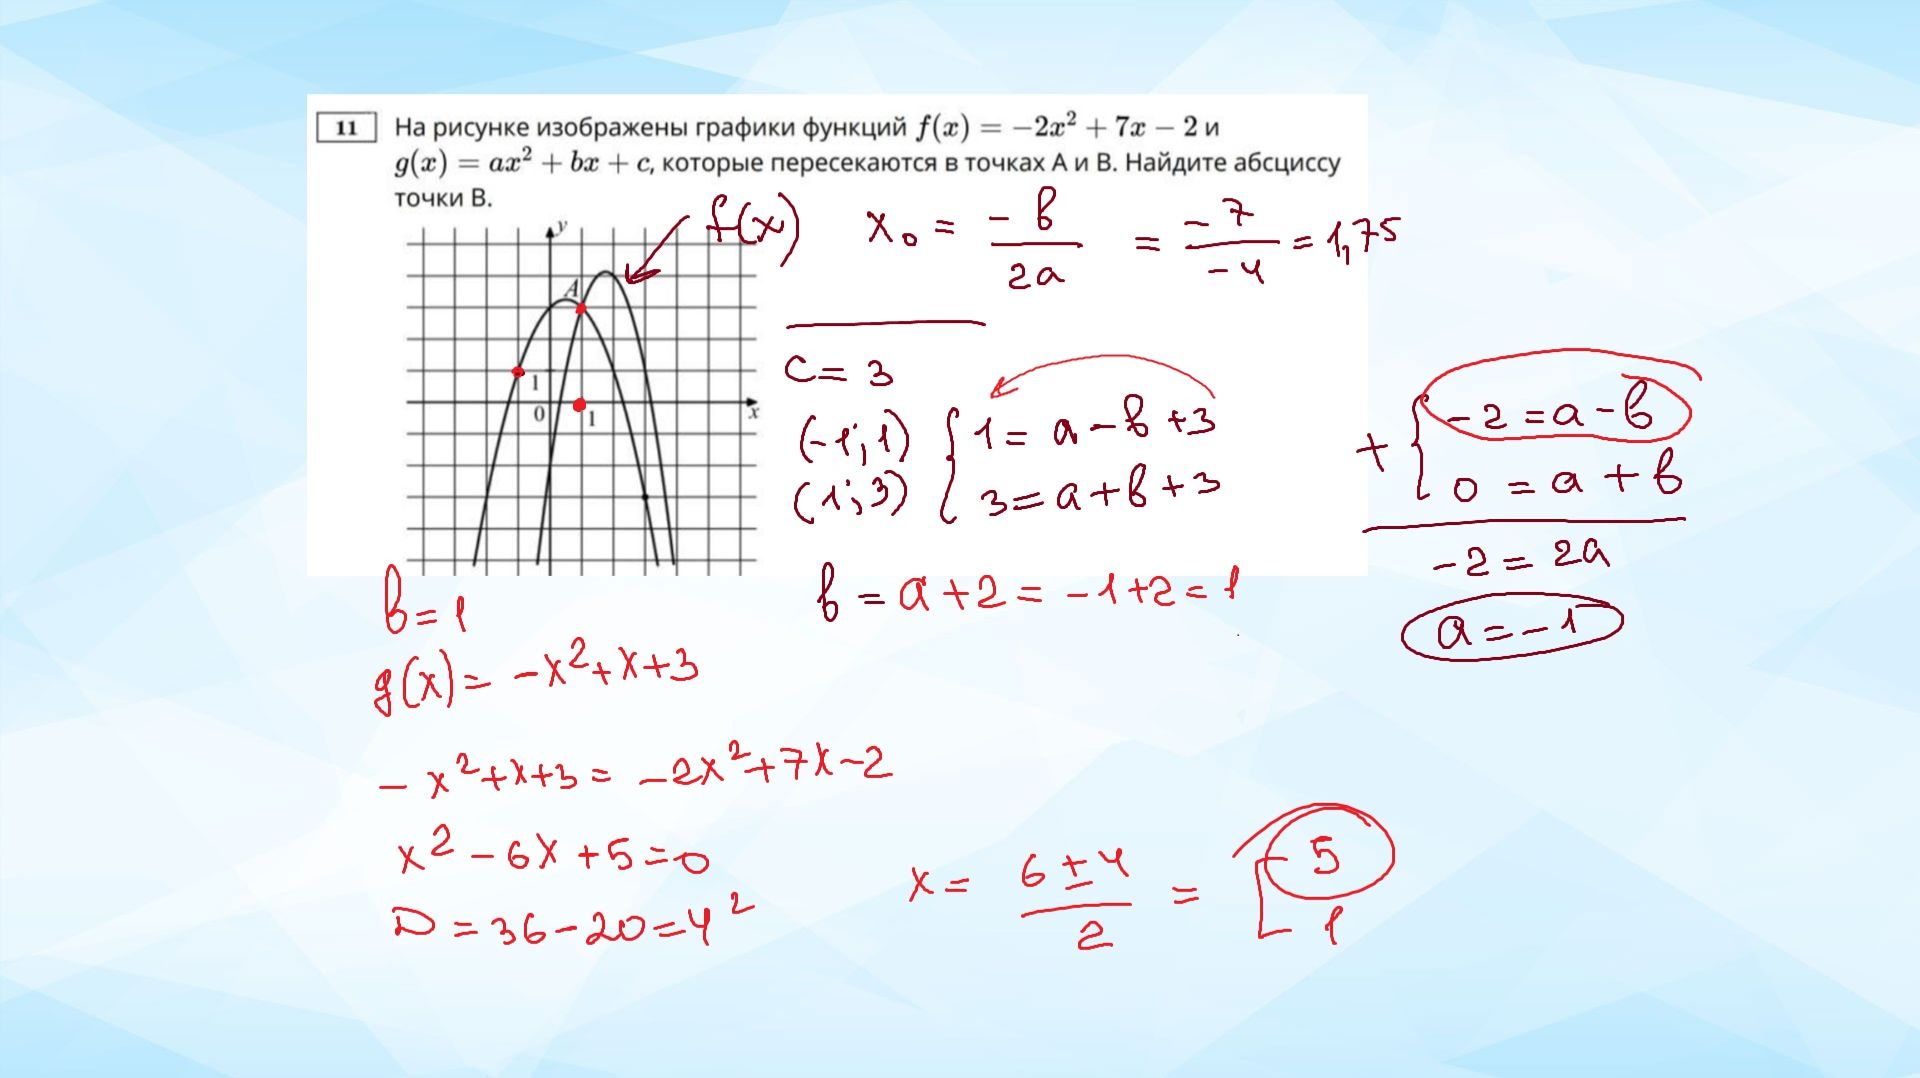 11 На рисунке изображены графики функций f(x) = −2x² + 7x − 2 и
g(x) = ax² + bx + c, которые пересекаются в точках A и B. Найдите абсциссу
точки B.
y
A
1
0
1
x
f(x)
x₀ = −b/2a = −7/−4 = 1,75
c = 3
(−1; 1) { 1 = a − b + 3
(1; 3) { 3 = a + b + 3
+ { −2 = a − b
0 = a + b
−2 = 2a
a = −1
b = a + 2 = −1 + 2 = 1
b = 1
g(x) = −x² + x + 3
−x² + x + 3 = −2x² + 7x − 2
x² − 6x + 5 = 0
D = 36 − 20 = 4²
x = 6 ± 4 / 2 = [ 5
1